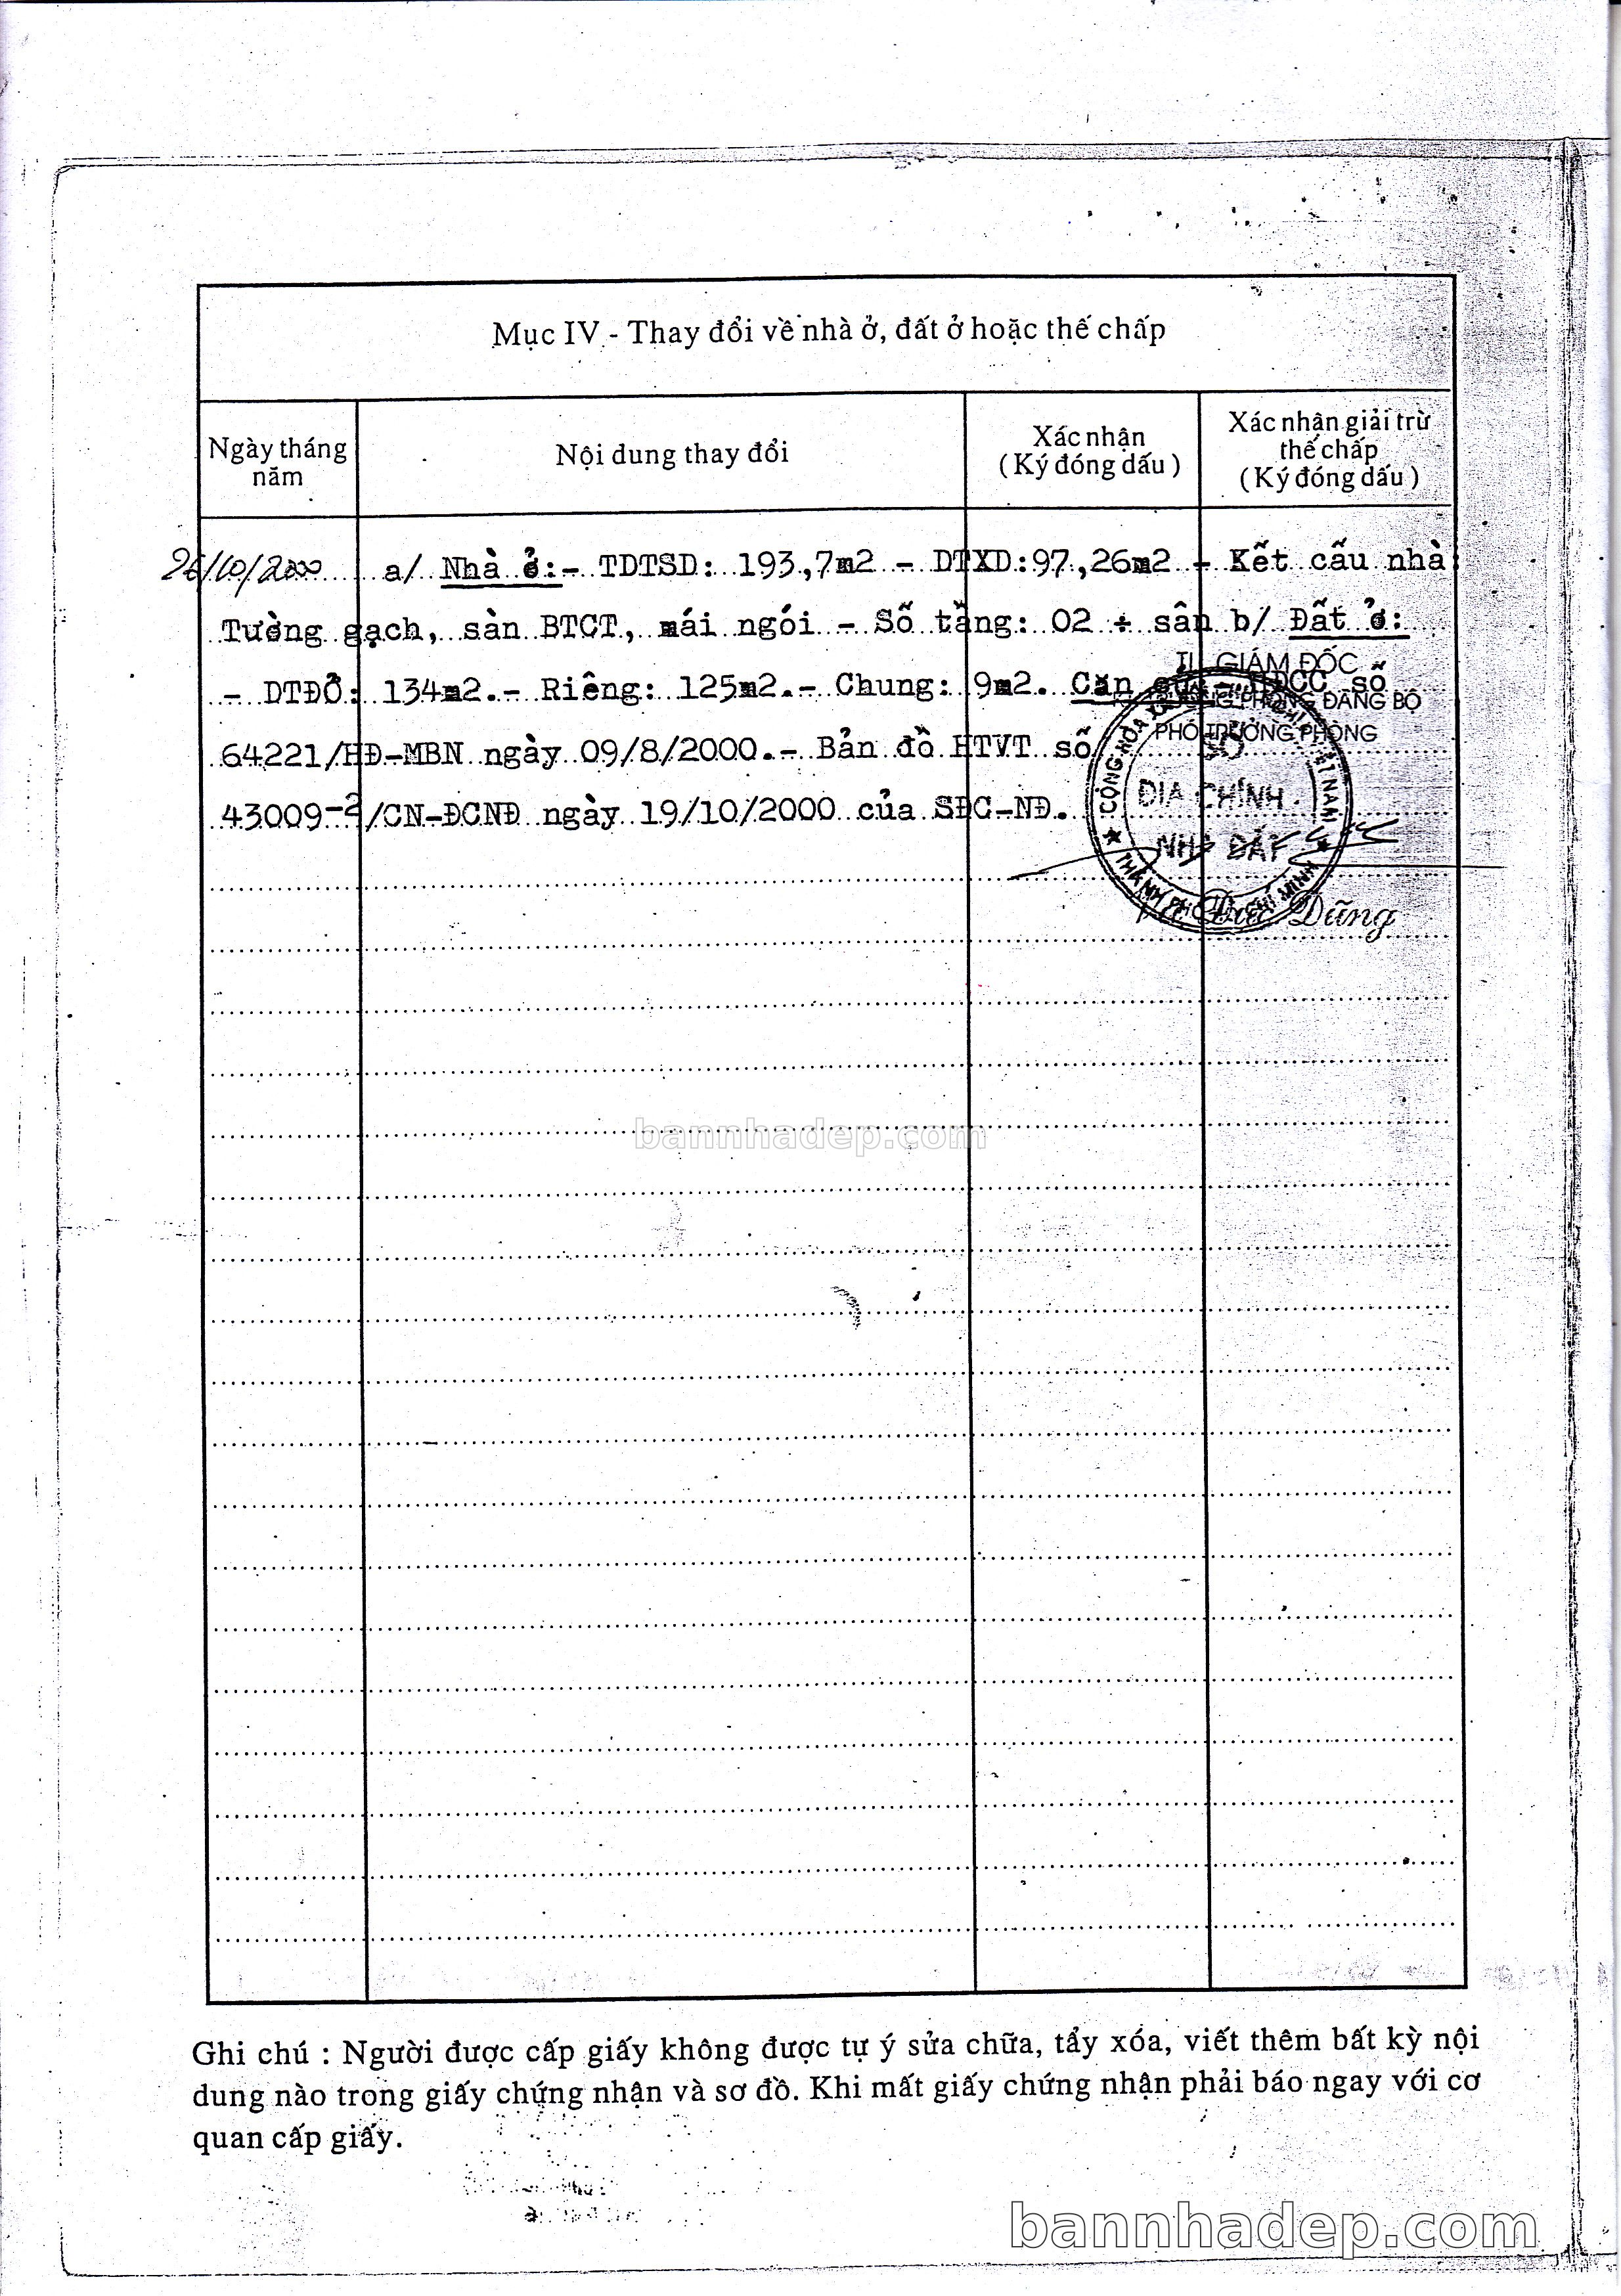 Mục IV - Thay đổi về nhà ở, đất ở hoặc thế chấp
Ngày tháng
năm
Nội dung thay đổi
Xác nhận
(Ký đóng dấu)
Xác nhận giải trừ
thế chấp
(Ký đóng dấu)
26/10/2000 a/ Nhà ở:- TDTSD: 193,7m2 - DTXD:97,26m2 - Kết cấu nhà:
Tường gạch, sàn BTCT, mái ngói - Số tầng: 02 + sân b/ Đất ở:
- DTĐỞ: 134m2.- Riêng: 125m2.- Chung: 9m2. Căn số
64221/HĐ-MBN ngày 09/8/2000.- Bản đồ HTVT số
43009-2/CN-ĐCNĐ ngày 19/10/2000 của SĐC-NĐ.
GIÁM ĐỐC
PHÒNG ĐĂNG BỘ
PHÓ TRƯỞNG PHÒNG
CỘNG HÒA NAM
SỞ
ĐỊA CHÍNH
NHÀ ĐẤT
THÀNH PHỐ CHÍ MINH
Đức Dũng
bannhadep.com
Ghi chú : Người được cấp giấy không được tự ý sửa chữa, tẩy xóa, viết thêm bất kỳ nội
dung nào trong giấy chứng nhận và sơ đồ. Khi mất giấy chứng nhận phải báo ngay với cơ
quan cấp giấy.
bannhadep.com